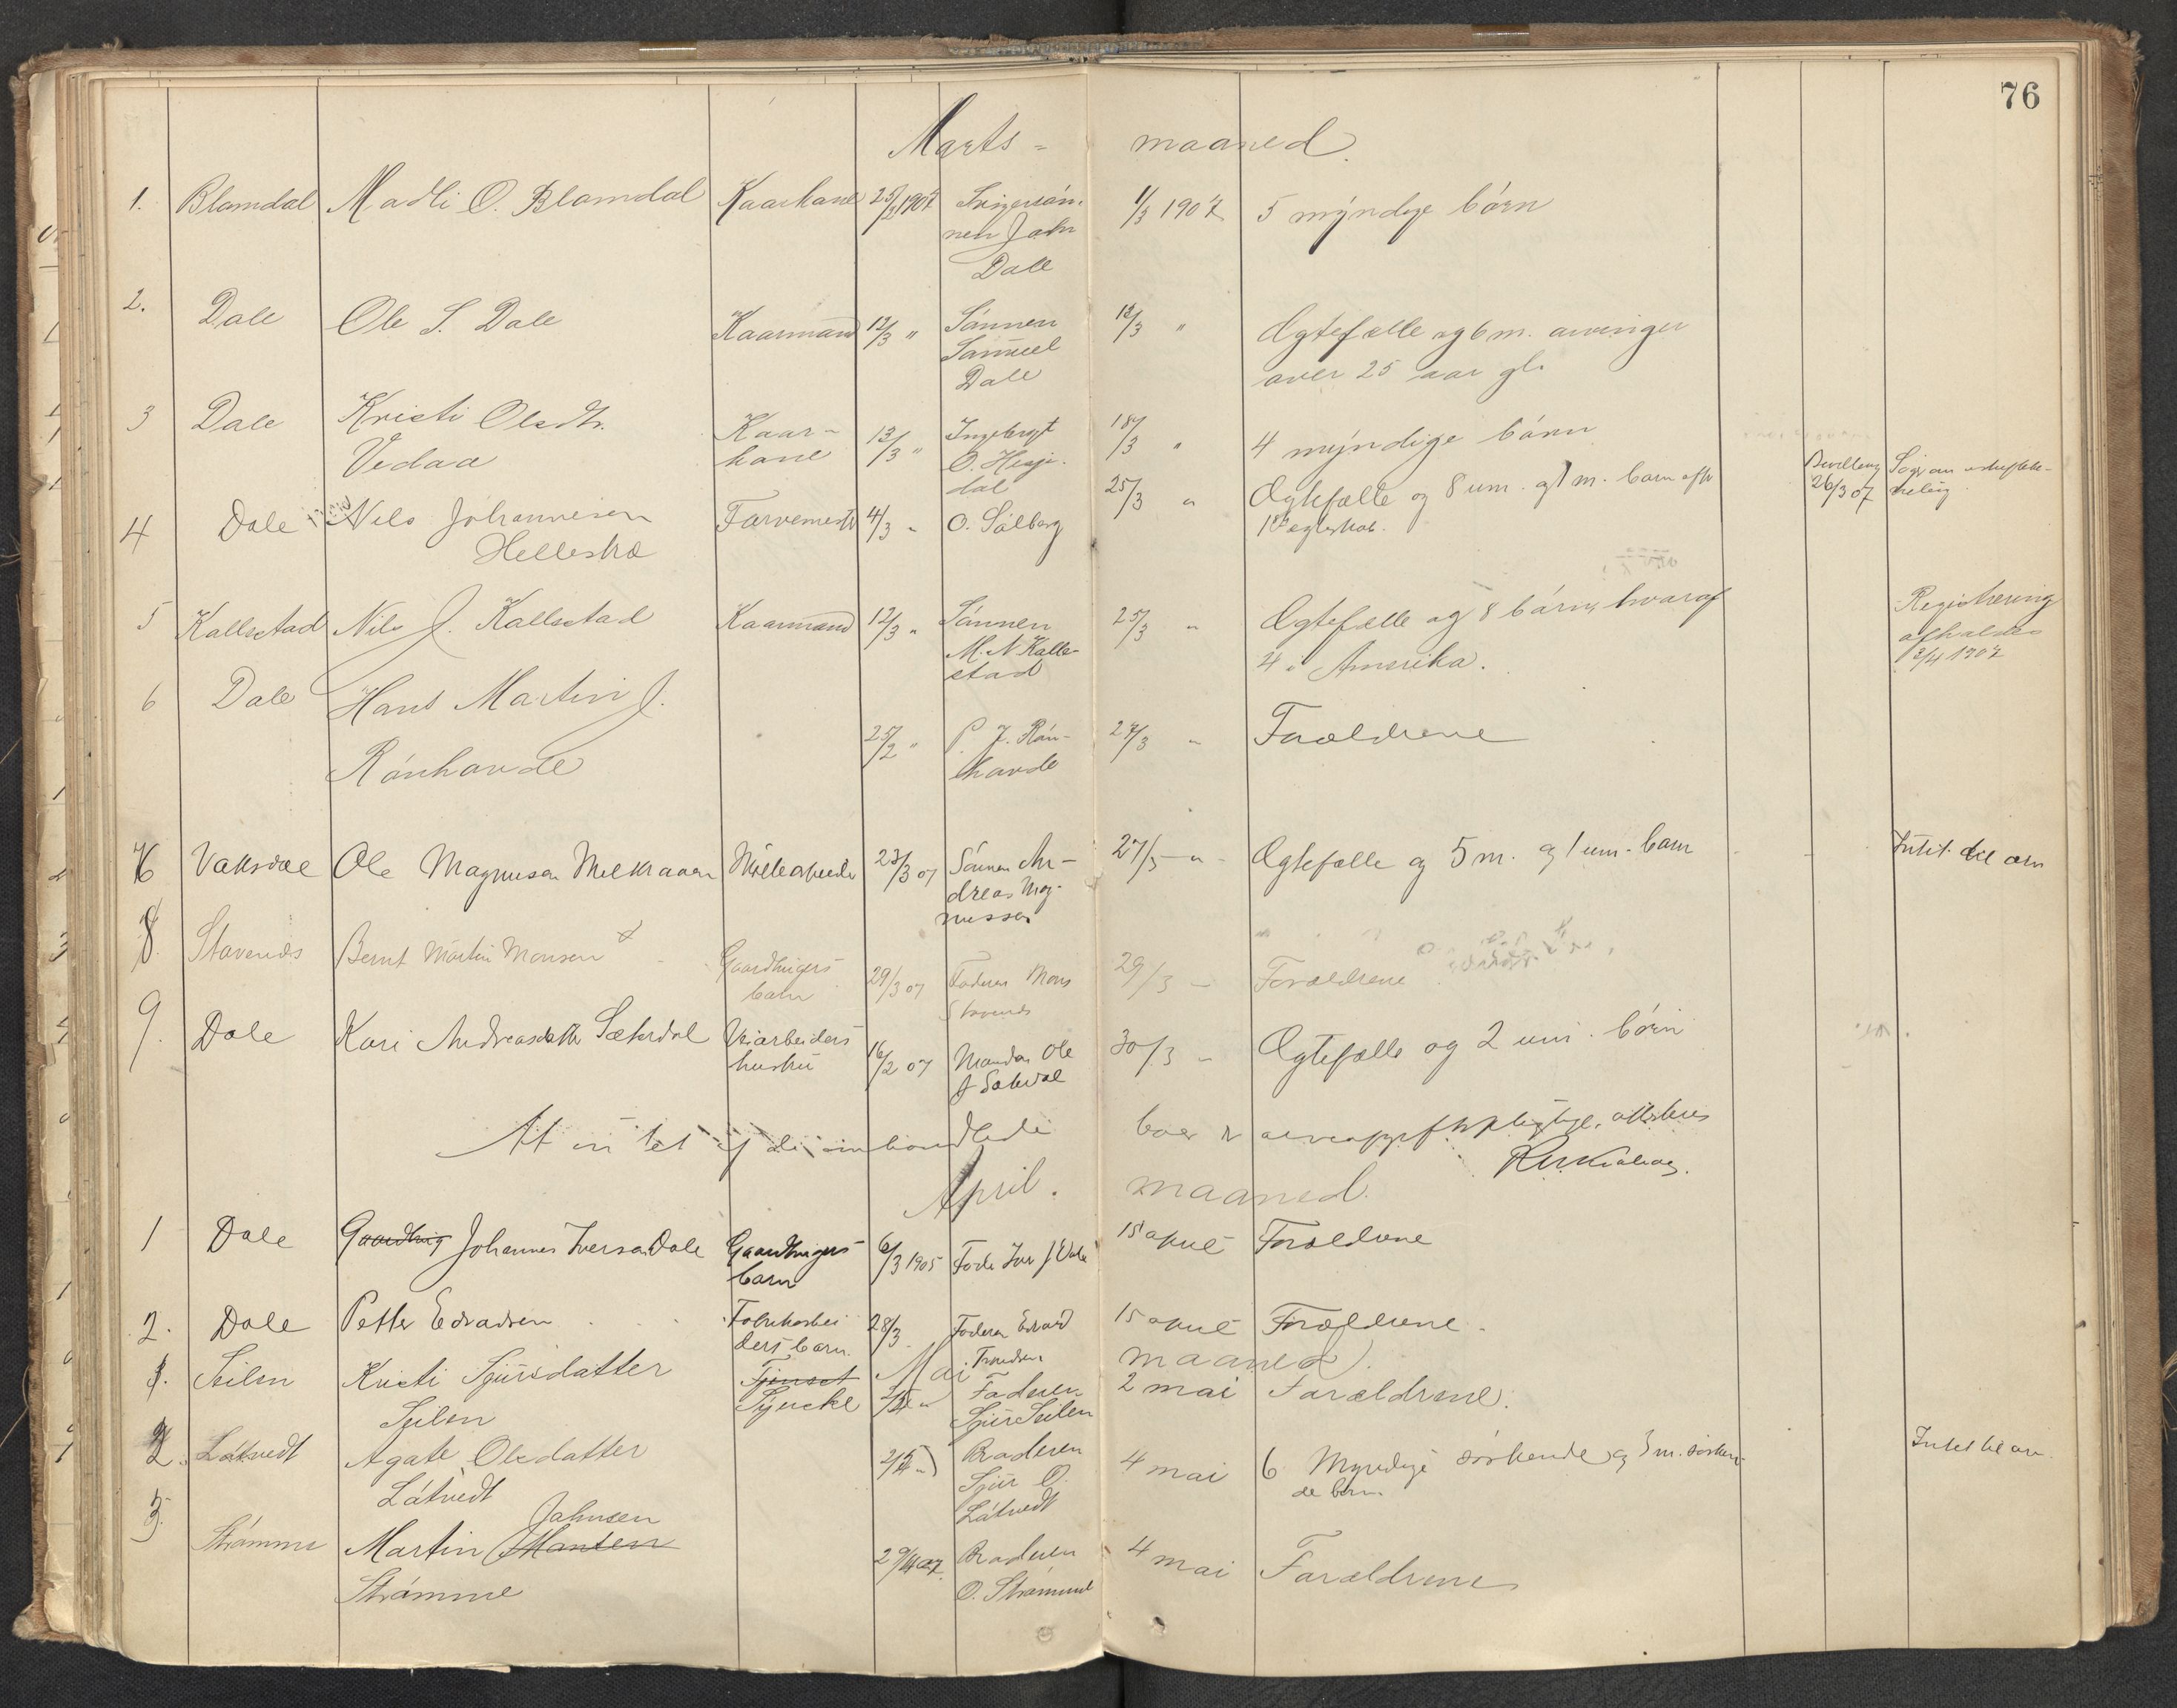 76
Marts - maaned.
1. Blomdal Madli O. Blomdal Kaarkone 25/2 1907 Svigersøn- 1/3 1907 5 myndige børn
nen John
Dale
2. Dale Ole S. Dale Kaarmand 12/3 " Sønnen 18/3 " Ægtefælle og 6 m. arvinger
Samuel over 25 aar gl.
Dale
3 Dale Kristi Olsdtr. Kaar- 13/3 " Ingebrigt 18/3 " 4 myndige børn
Vedaa kone O. Hesje-
dal
4 Dale Nils Johannesen Farvemester 4/3 " O. Solberg 25/3 " Ægtefælle og 8 um. og 1 m. barn efter Bevilling
Helleskræ 1ste ægteskab. 26/3 07
5 Kallestad Nils J. Kallestad Kaarmand 12/3 " Sønnen 25/3 " Ægtefælle og 8 børn, hvoraf Registrering
M. N. Kalle- 4 i Amerika. afholdes
stad 3/4 1907
6 Dale Hans Martin J.
Rønhovde 25/2 " P. J. Røn- 27/3 " Forældrene
hovde
7 Vaksdal Ole Magnusen Melkraaen Møllearbeider 23/3 07 Sønnen An- 27/3 " Ægtefælle og 5 m. og 1 um. barn Intet til arv
dreas Mag-
nussen
8. Stavenes Bernt Martin Monsen Gaardbrugers 29/3 07 Faderen Mons 29/3 - Forældrene
barn Stavenes
9. Dale Kari Andreasdatter Sæterdal Veiarbeiders 16/2 07 Manden Ole 30/3 - Ægtefælle og 2 um. børn
hustru A Sæterdal
At intet af de omhandlede boer er arveafgiftspligtige, attesteres
April. maaned.
1 Dale Gaardbrug Johannes Iversen Dale Gaardbrugers 6/3 1905 Fader Iver J Dale 15 april Forældrene
barn
2. Dale Petter Edvardsen Fabrikarbei 28/3 Faderen Edvard 15 april Forældrene.
ders barn. Trondsen
Mai maaned.
1. Seilen Kristi Sjursdatter Tjenest Faderen 2 mai Forældrene.
Seilen Syerske Sjur Seilen
2. Låtvedt Agate Olsdatter Broderen 4 mai 6 Myndige søsken­de og 3 m. søsken- Intet til arv
Låtvedt Sjur O. de børn.
Låtvedt
3. Strømme Martin Johnsen Monsen 29/4 07. Broderen 4 mai Forældrene
Strømme O. Strømme